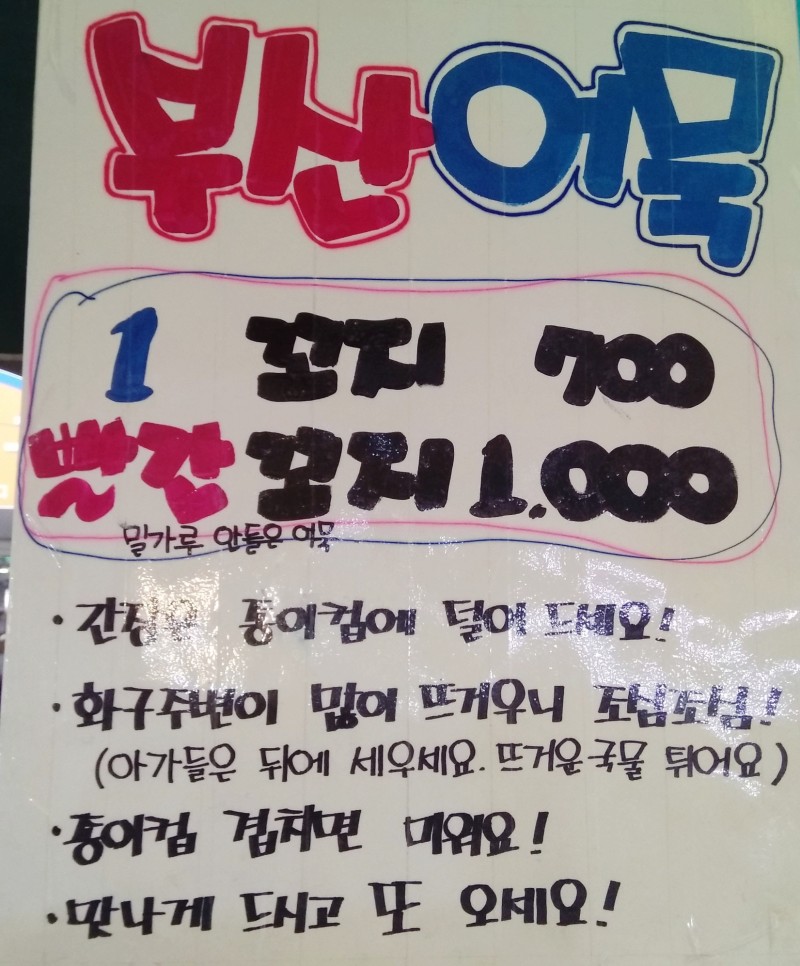 부산어묵
1 꼬지 700
빨간 꼬지 1.000
밀가루 안들은 어묵
· 간장은 종이컵에 덜어 드세요!
· 화구주변이 많이 뜨거우니 조심조심!
(아가들은 뒤에 세우세요. 뜨거운 국물 튀어요)
· 종이컵 겹치면 미워요!
· 맛나게 드시고 또 오세요!